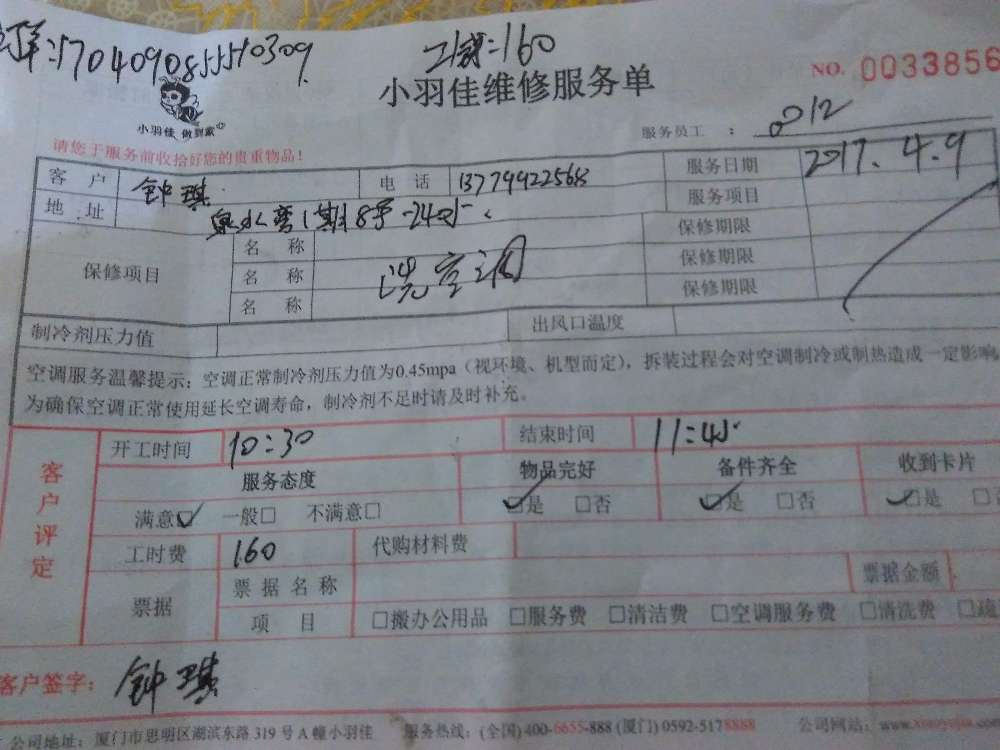 工费:160
小羽佳维修服务单
NO. 0033856
小羽佳 做到家
服务员工 : 0012
请您于服务前收拾好您的贵重物品!
客户 钟琪 电话 服务日期 2017.4.9
地址 服务项目
保修项目 名称 洗空调 保修期限
名称 保修期限
名称 保修期限
制冷剂压力值 出风口温度
空调服务温馨提示:空调正常制冷剂压力值为0.45mpa(视环境、机型而定),拆装过程会对空调制冷或制热造成一定影响
为确保空调正常使用延长空调寿命,制冷剂不足时请及时补充。
客户评定
开工时间 10:30 结束时间
服务态度 物品完好 备件齐全 收到卡片
满意☑ 一般□ 不满意□ ☑是 □否 ☑是 □否 ☑是
工时费 160 代购材料费
票据 票据名称 票据金额
项目 □搬办公用品 □服务费 □清洁费 □空调服务费 □清洗费
客户签字: 钟琪
公司地址:厦门市思明区湖滨东路319号A幢小羽佳 服务热线:(全国)400-6655-888 (厦门) 0592-5178888 公司网站: